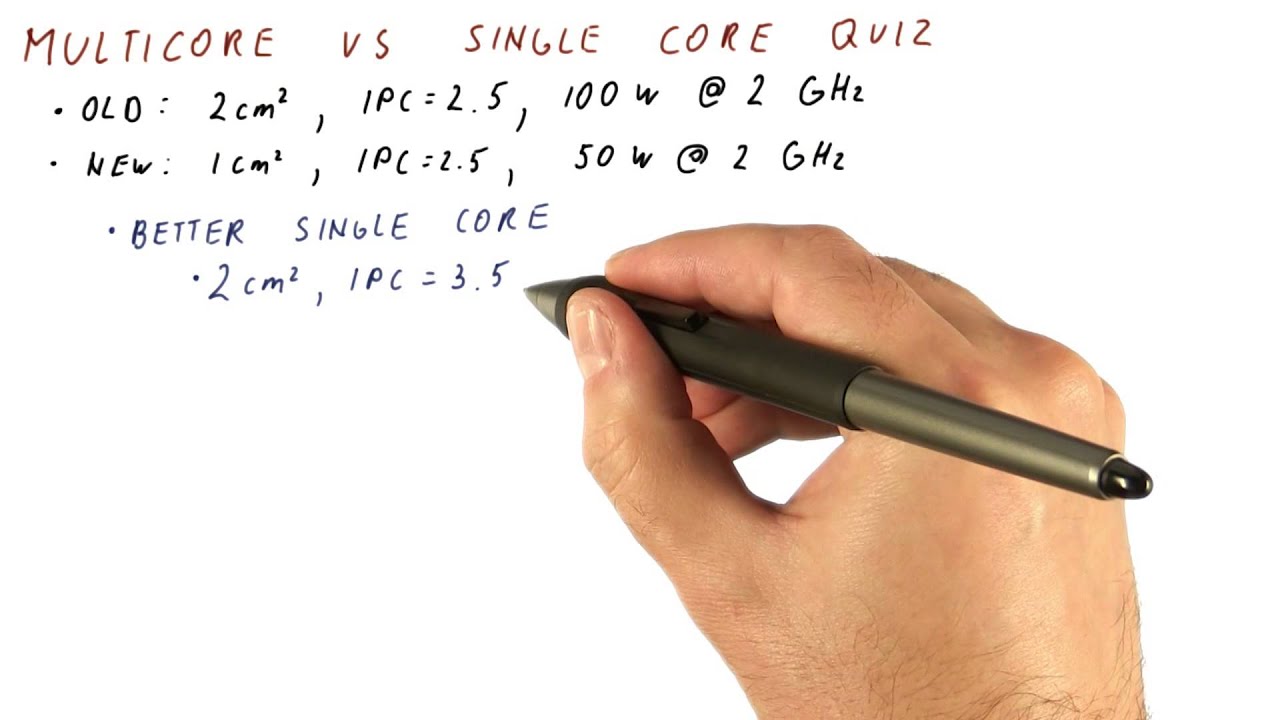 MULTICORE VS SINGLE CORE QUIZ
• OLD: 2cm², IPC=2.5, 100W @ 2 GHz
• NEW: 1cm², IPC=2.5, 50W @ 2 GHz
• BETTER SINGLE CORE
• 2cm², IPC=3.5